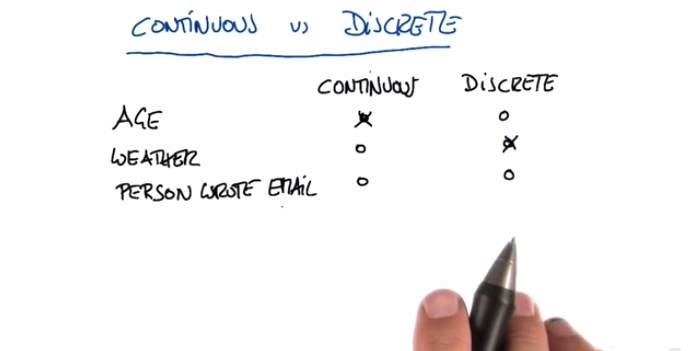 CONTINUOUS vs DISCRETE
CONTINUOUS DISCRETE
AGE
WEATHER
PERSON WROTE EMAIL